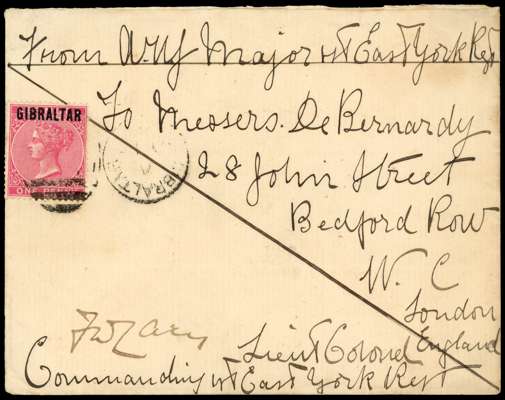 From Major 1st East York Regt
GIBRALTAR
To Messers. De Bernardy
GIBRALTAR
28 John Street
ONE PENNY
Bedford Row
W. C
London
England
Lieut Colonel
Commanding 1st East York Regt